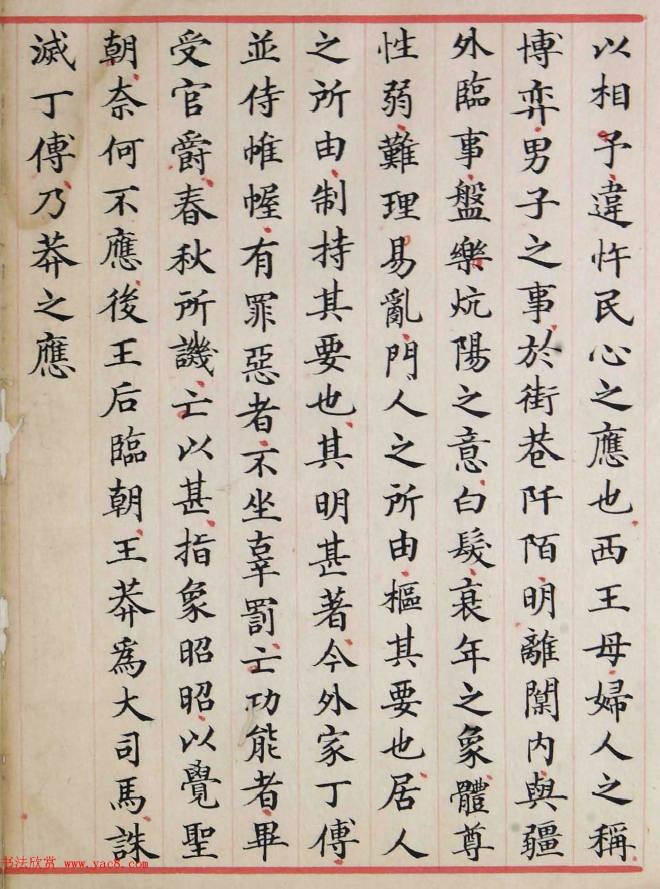 以相予違忤民心之應也西王母婦人之稱
博弈男子之事於街巷阡陌明離闑内與疆
外臨事盤樂炕陽之意白髮衰年之象體尊
性弱難理易亂門人之所由樞其要也居人
之所由制持其要也其明甚著今外家丁傅
並侍帷幄有罪惡者不坐辜罰亡功能者畢
受官爵春秋所譏亡以甚指象昭昭以覺聖
朝奈何不應後王后臨朝王莽爲大司馬誅
滅丁傅乃莽之應
书法欣赏 www.yac8.com